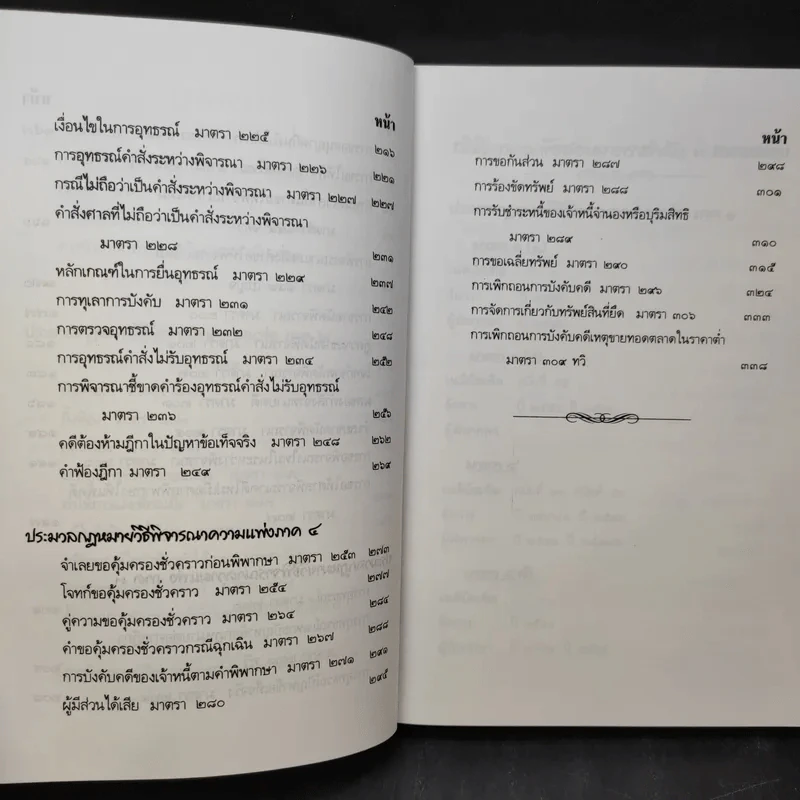 หน้า
เงื่อนไขในการอุทธรณ์ มาตรา ๒๒๕ ๒๑๖
การอุทธรณ์คำสั่งระหว่างพิจารณา มาตรา ๒๒๖ ๒๒๑
กรณีไม่ถือว่าเป็นคำสั่งระหว่างพิจารณา มาตรา ๒๒๗ ๒๒๗
คำสั่งศาลที่ไม่ถือว่าเป็นคำสั่งระหว่างพิจารณา
มาตรา ๒๒๘ ๒๓๑
หลักเกณฑ์ในการยื่นอุทธรณ์ มาตรา ๒๒๙ ๒๓๗
การทุเลาการบังคับ มาตรา ๒๓๑ ๒๔๒
การตรวจอุทธรณ์ มาตรา ๒๓๒ ๒๔๘
การอุทธรณ์คำสั่งไม่รับอุทธรณ์ มาตรา ๒๓๔ ๒๕๒
การพิจารณาชี้ขาดคำร้องอุทธรณ์คำสั่งไม่รับอุทธรณ์
มาตรา ๒๓๖ ๒๕๖
คดีต้องห้ามฎีกาในปัญหาข้อเท็จจริง มาตรา ๒๔๘ ๒๖๒
คำฟ้องฎีกา มาตรา ๒๔๙ ๒๖๙
ประมวลกฎหมายวิธีพิจารณาความแพ่งภาค ๔
จำเลยขอคุ้มครองชั่วคราวก่อนพิพากษา มาตรา ๒๕๓ ๒๗๓
โจทก์ขอคุ้มครองชั่วคราว มาตรา ๒๕๔ ๒๗๗
คู่ความขอคุ้มครองชั่วคราว มาตรา ๒๖๔ ๒๘๔
คำขอคุ้มครองชั่วคราวกรณีฉุกเฉิน มาตรา ๒๖๗ ๒๘๘
การบังคับคดีของเจ้าหนี้ตามคำพิพากษา มาตรา ๒๗๑ ๒๙๑
ผู้มีส่วนได้เสีย มาตรา ๒๘๐ ๒๙๕
หน้า
การขอกันส่วน มาตรา ๒๘๗ ๒๙๘
การร้องขัดทรัพย์ มาตรา ๒๘๘ ๓๐๑
การรับชำระหนี้ของเจ้าหนี้จำนองหรือบุริมสิทธิ
มาตรา ๒๘๙ ๓๑๐
การขอเฉลี่ยทรัพย์ มาตรา ๒๙๐ ๓๑๕
การเพิกถอนการบังคับคดี มาตรา ๒๙๖ ๓๒๔
การจัดการเกี่ยวกับทรัพย์สินที่ยึด มาตรา ๓๐๖ ๓๓๓
การเพิกถอนการบังคับคดีเหตุขายทอดตลาดในราคาต่ำ
มาตรา ๓๐๙ ทวิ ๓๓๘